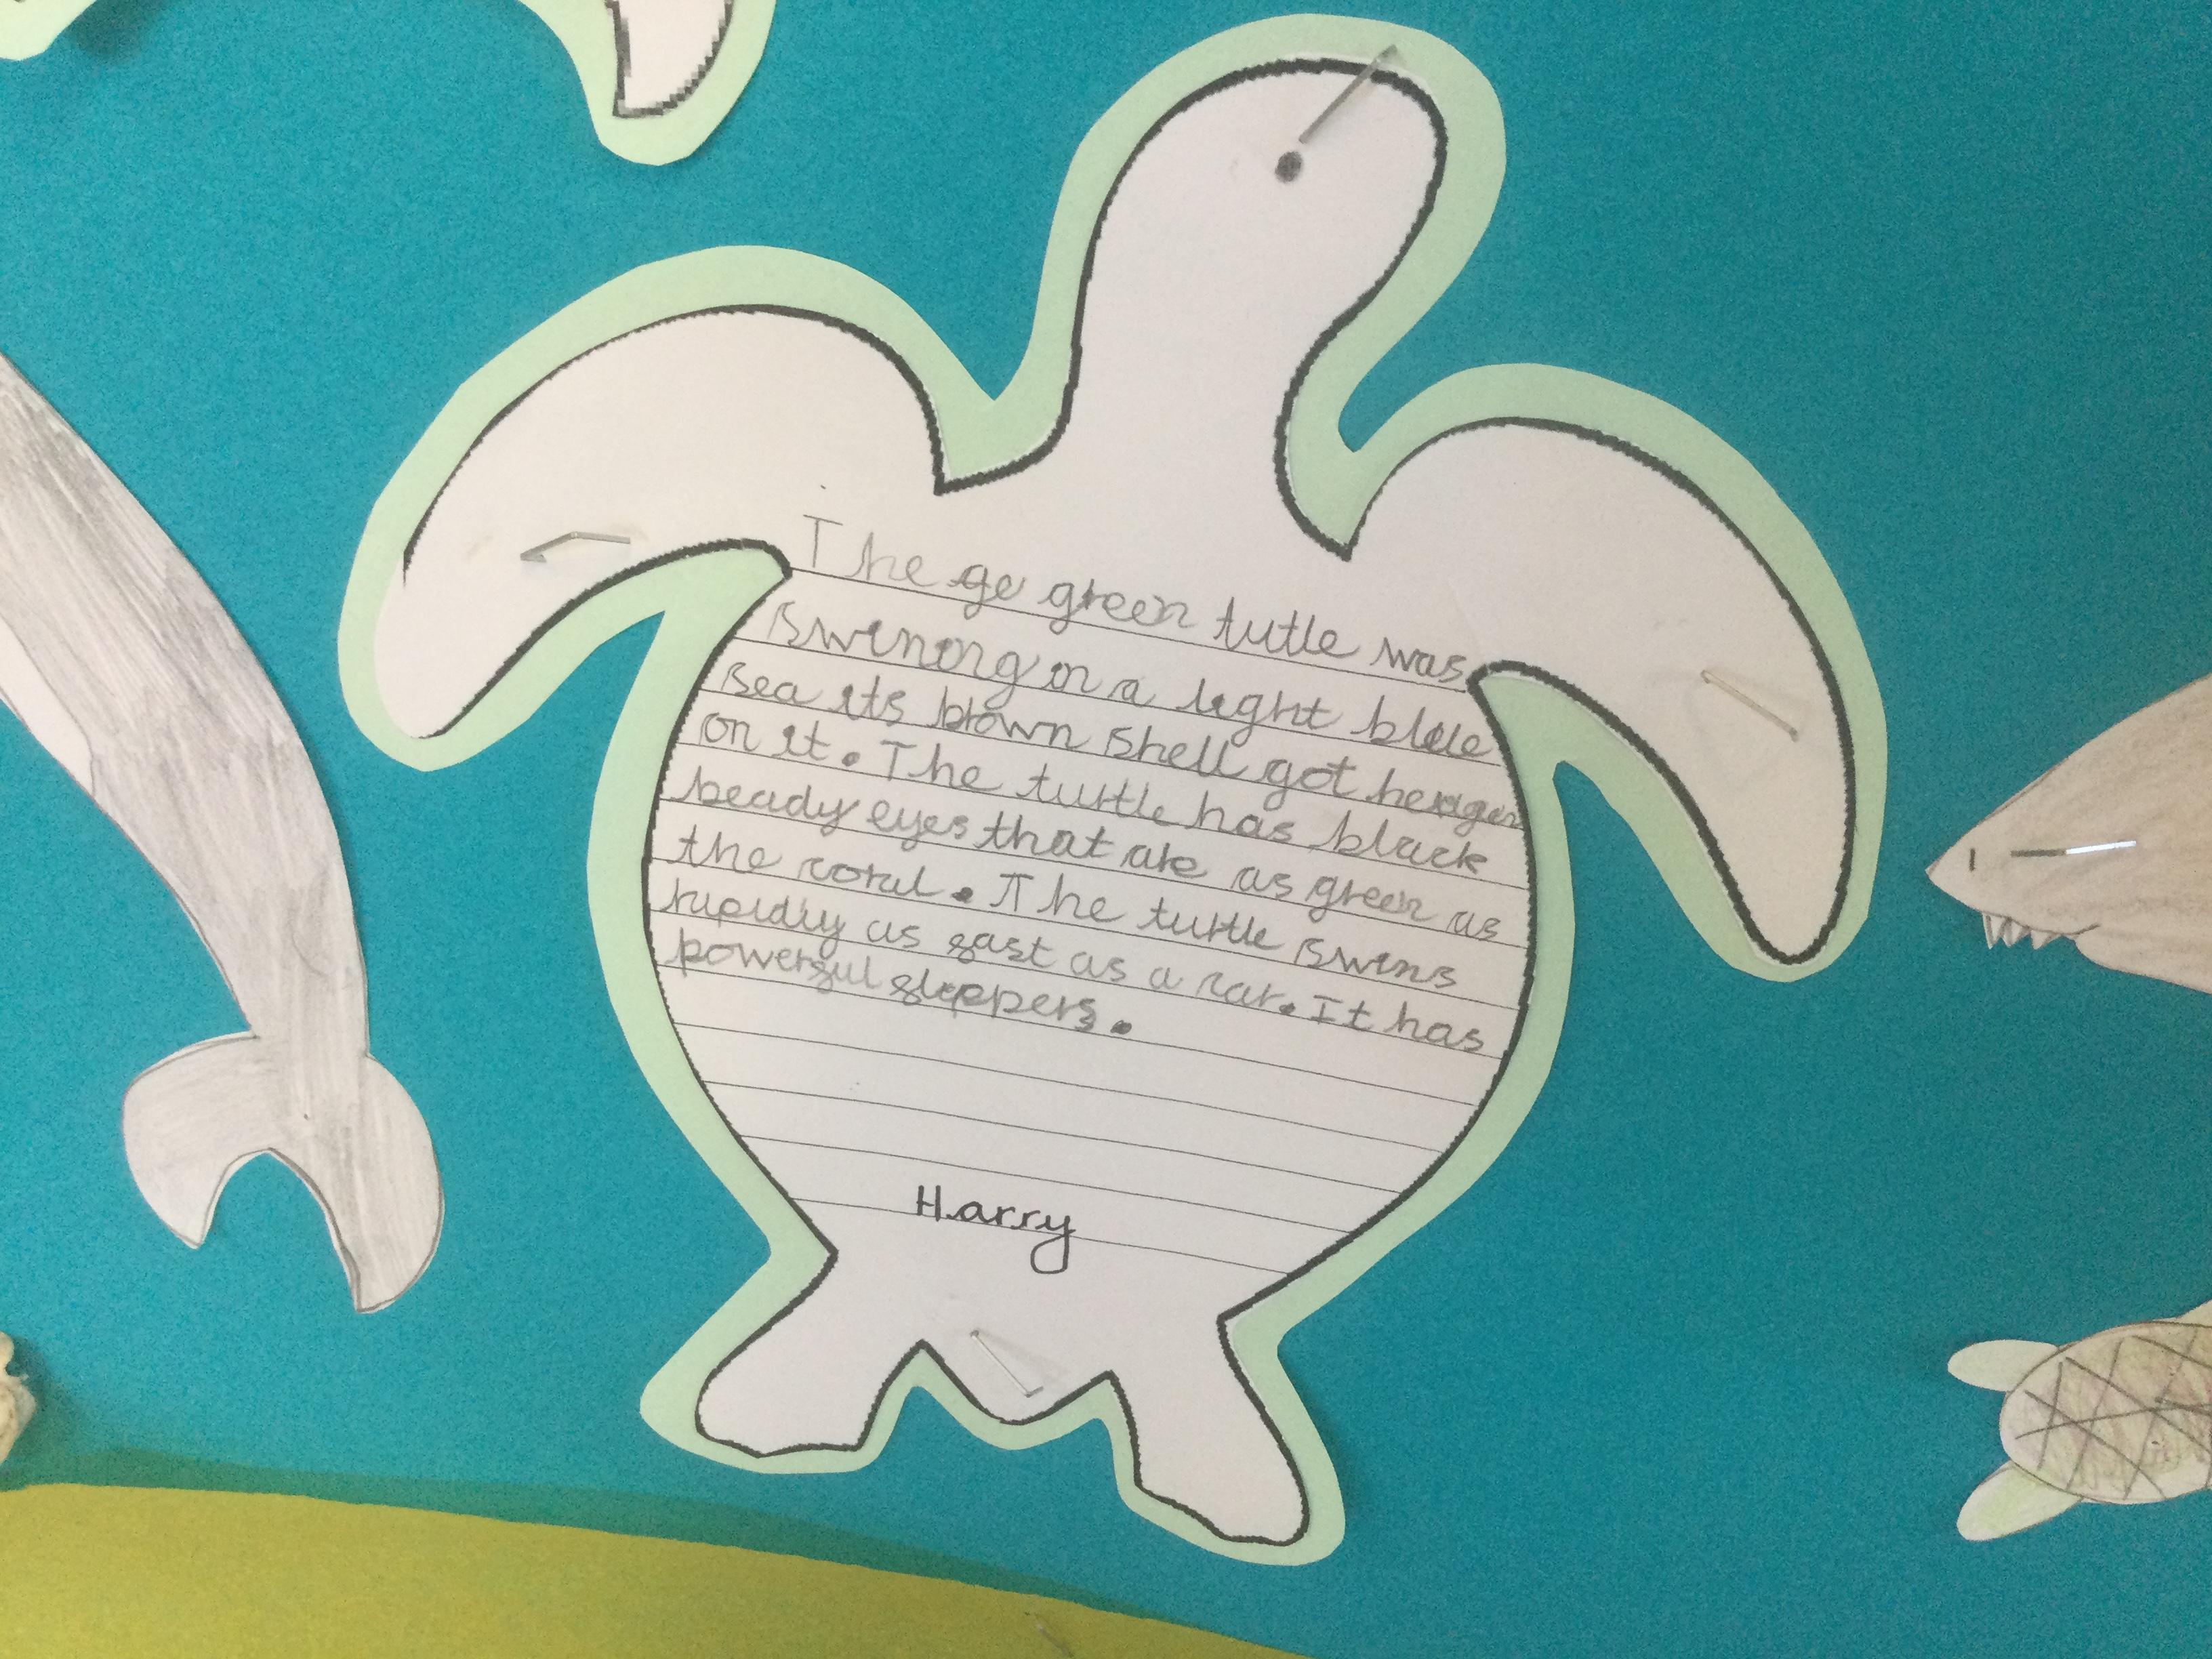 The ge green tutle was
swining in a light blue
sea its brown shell got hexagen
on it. The turtle has black
beady eyes that are as green as
the coral. The turtle swins
rapidly as fast as a car. It has
powerful flippers.
Harry